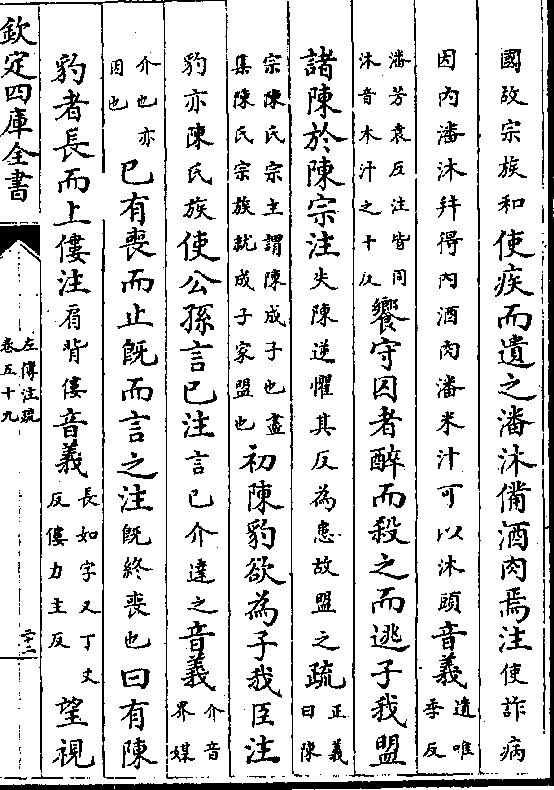 國故宗族和使疾而遺之潘沐備酒肉焉注使詐病
因內潘沐并得內酒肉潘米汁可以沐頭音義遺唯季反
潘芳袁反注皆同沐音木汁之十反饗守囚者醉而殺之而逃子我盟
諸陳於陳宗注失陳逆懼其反為患故盟之疏正義曰陳
宗陳氏宗主謂陳成子也盡集陳氏宗族就成子家盟也初陳豹欲為子我臣注
豹亦陳氏族使公孫言已注言已介達之音義介音界媒
介也亦因也已有喪而止既而言之注既終喪也曰有陳
豹者長而上僂注肩背僂音義長如字又丁丈反僂力主反望視
欽定四庫全書
左傳注疏
卷五十九